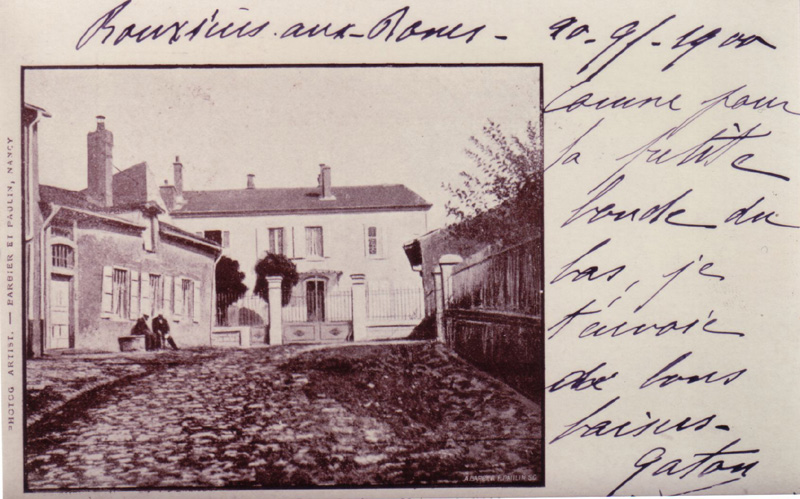 Rouxières-aux-Dames - 20-9bre-1900
Comme pour
la petite
bande du
bas, je
t'envoie
de bons
baisers -
Gaston
PHOTOG ARTIST. — BARBIER ET PAULIN, NANCY
A. BARBIER & PAULIN SC